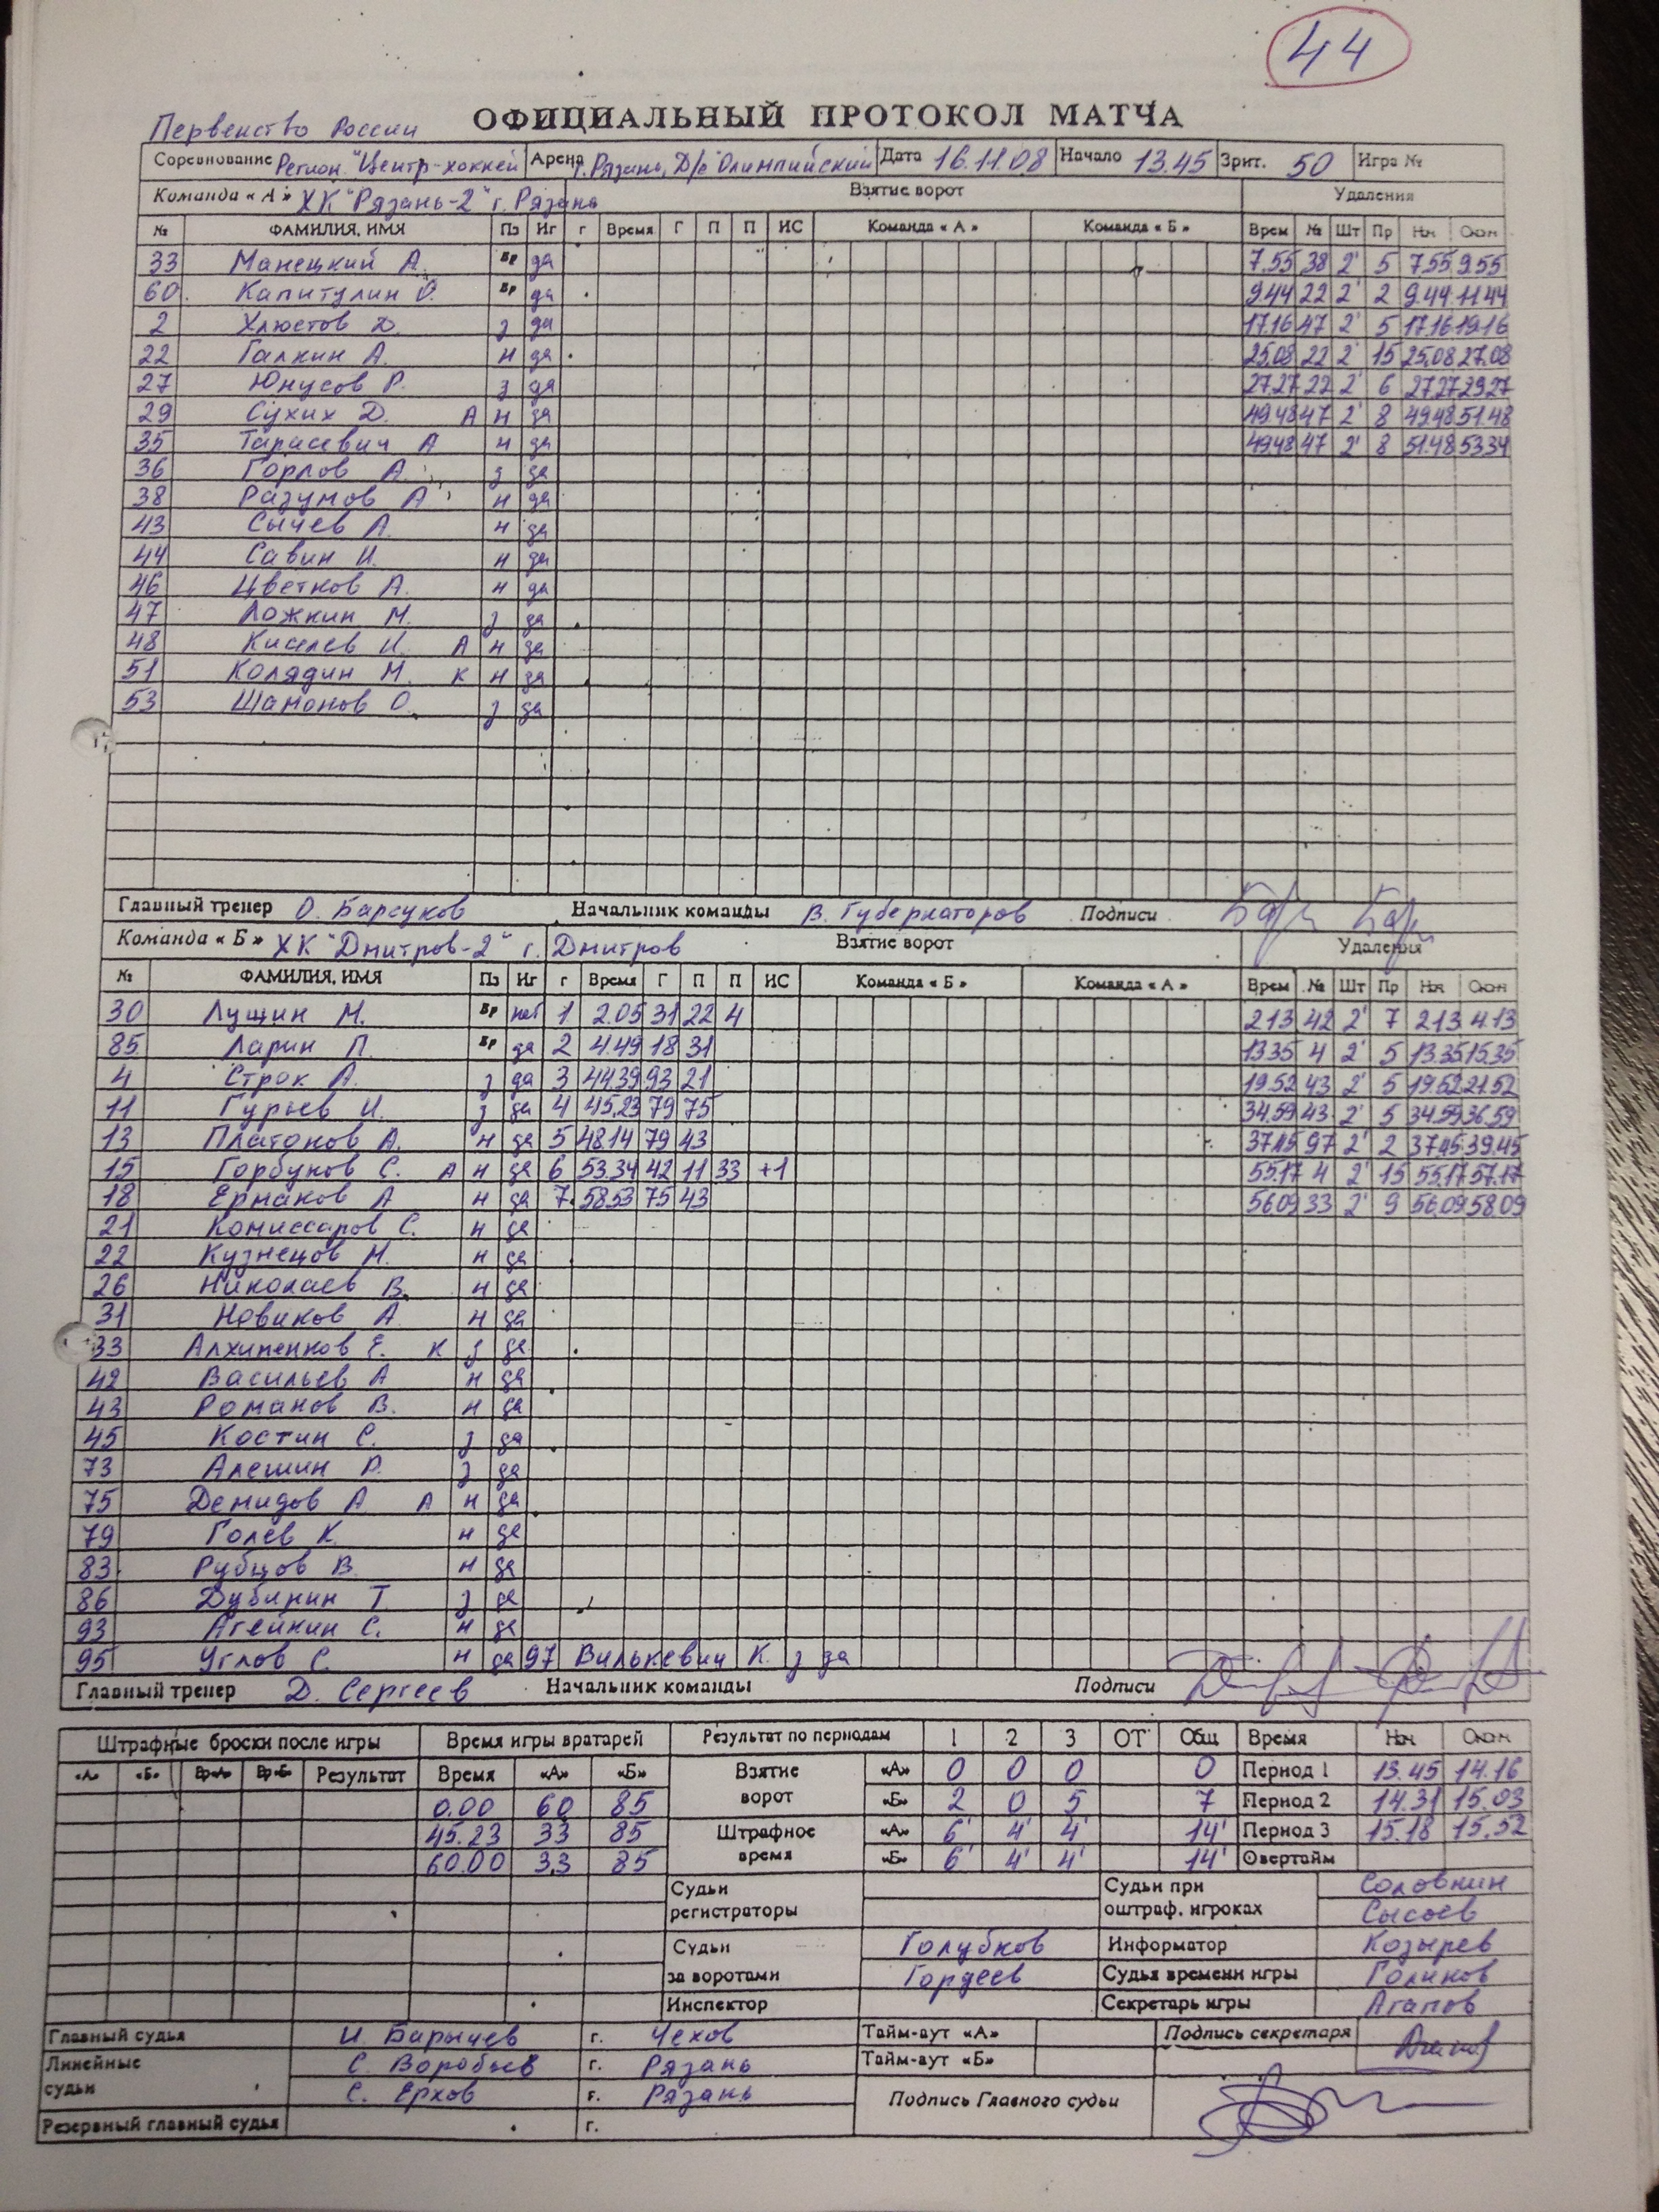 44
ОФИЦИАЛЬНЫЙ ПРОТОКОЛ МАТЧА
Первенство России
Соревнование Регион "Центр-хоккей Арена г. Рязань, Д/с Олимпийский Дата 16.11.08 Начало 13.45 Зрит. 50 Игра №
Команда «А» ХК "Рязань-2" г. Рязань Взятие ворот Удаления
№ ФАМИЛИЯ, ИМЯ Пз Иг г Время Г П П ИС Команда «А» Команда «Б» Врем № Шт Пр Нач Окон
33 Манецкий А. Вр да 7.55 38 2' 5 7.55 9.55
60 Капитулин Вр да 9.44 22 2' 2 9.44 11.44
2 Хлюстов Д. з да 17.16 47 2' 5 17.16 19.16
22 Галкин А. н да 25.08 22 2' 15 25.08 27.08
27 Юнусов Р. з да 27.27 22 2' 6 27.27 29.27
29 Сухих Д. А н да 49.48 47 2' 8 49.48 51.48
35 Тарасевич А н да 49.48 47 2' 8 51.48 53.34
36 Горлов А. з да
38 Разумов А н да
43 Сычев А. н да
44 Савин И. н да
46 Цветков А. н да
47 Ложкин М. з да
48 Киселев И. А н да
51 Колядин М. К н да
53 Шамонов О. з да
Главный тренер О. Барсуков Начальник команды В. Губернаторов Подписи
Команда «Б» ХК "Дмитров-2" г. Дмитров Взятие ворот Удаления
№ ФАМИЛИЯ, ИМЯ Пз Иг г Время Г П П ИС Команда «Б» Команда «А» Врем № Шт Пр Нач Окон
30 Лущин М. Вр нет 1 2.05 31 22 4 2.13 42 2' 7 2.13 4.13
85 Ларин П. Вр да 2 4.49 18 31 13.35 4 2' 5 13.35 15.35
4 Строк А. з да 3 44.39 93 21 19.52 43 2' 5 19.52 21.52
11 Гурьев И. з да 4 45.23 79 75 34.59 43 2' 5 34.59 36.59
13 Платонов А. н да 5 48.14 79 43 37.45 97 2' 2 37.45 39.45
15 Горбунов С. А н да 6 53.34 42 11 33 +1 55.17 4 2' 15 55.17 57.17
18 Ермаков А н да 7 58.53 75 43 56.09 33 2' 9 56.09 58.09
21 Комиссаров С. н да
22 Кузнецов М. н да
26 Николаев В. н да
31 Новиков А. н да
33 Алхименков Е. К з да
42 Васильев А н да
43 Романов В. н да
45 Костин С. з да
73 Алешин Р. з да
75 Демидов А А н да
79 Голев К н да
83 Рубцов В. н да
86 Дубинин Т з да
93 Агейкин С. н да
95 Углов С. н да 97 Вилькевич К. з да
Главный тренер Д. Сергеев Начальник команды Подписи
Штрафные броски после игры Время игры вратарей Результат по периодам 1 2 3 ОТ Общ Время Нач Окон
«А» «Б» Вр«А» Вр«Б» Результат Время «А» «Б» Взятие ворот «А» 0 0 0 0 Период 1 13.45 14.16
0.00 60 85 «Б» 2 0 5 7 Период 2 14.31 15.03
45.23 33 85 Штрафное время «А» 6' 4' 4' 14' Период 3 15.18 15.52
60.00 33 85 «Б» 6' 4' 4' 14' Овертайм
Судьи регистраторы Судьи при оштраф. игроках Соловкин
Сысоев
Судьи за воротами Голубков Информатор Козырев
Гордеев Судья времени игры Голиков
Инспектор Секретарь игры Агапов
Главный судья И. Барычев г. Чехов Тайм-аут «А» Подпись секретаря
Линейные судьи С. Воробьев г. Рязань Тайм-аут «Б»
С. Ерхов г. Рязань Подпись Главного судьи
Резервный главный судья г.